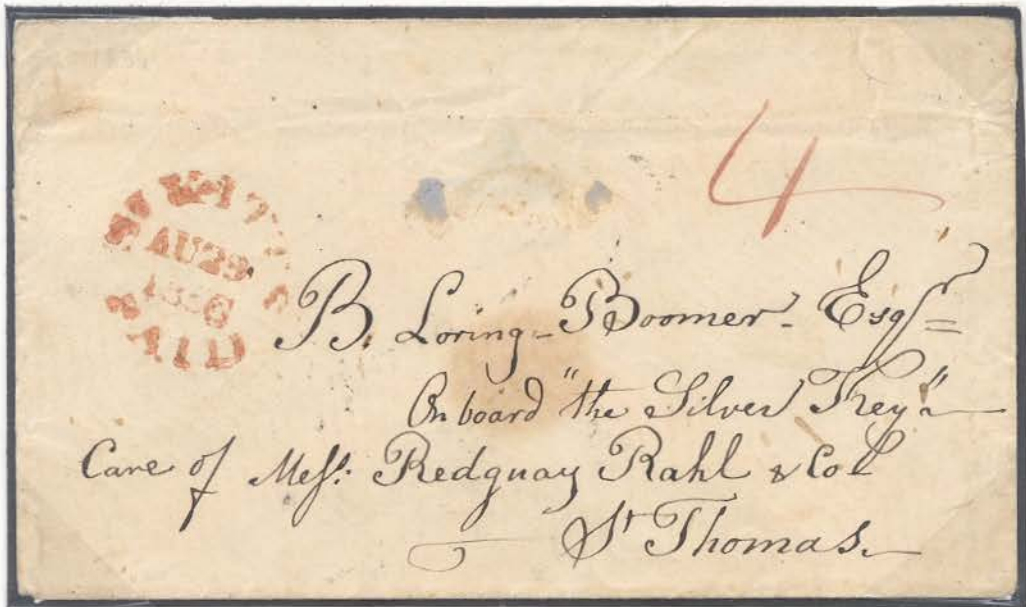 4
AU29
PAID
B. Loring-Boomer- Esqr
On board "the Silver Key"
Care of Messs. Redguay Rahl & Co
St Thomas.